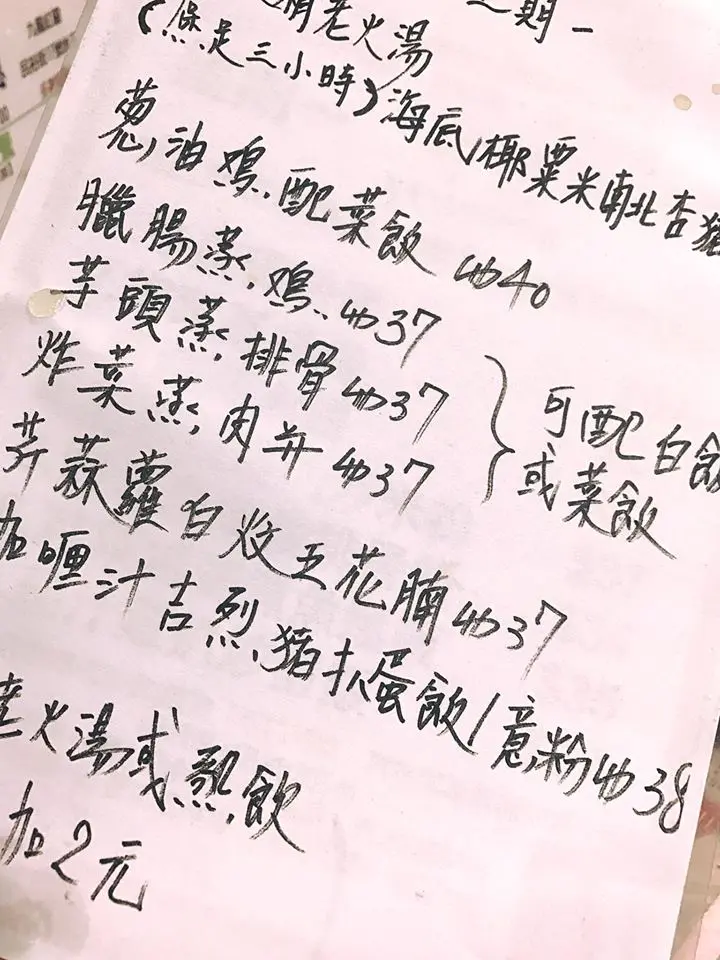 期一
老火湯
(煲足三小時)海底椰粟米南北杏豬
葱油鸡配菜飯 40
臘腸蒸鸡 37
芋頭蒸排骨 37
炸菜蒸肉并 37
可配白飯
或菜飯
芹蒜蘿白炆五花腩 37
加喱汁吉烈豬扒蛋飯/意粉 38
老火湯或熱飲
加2元